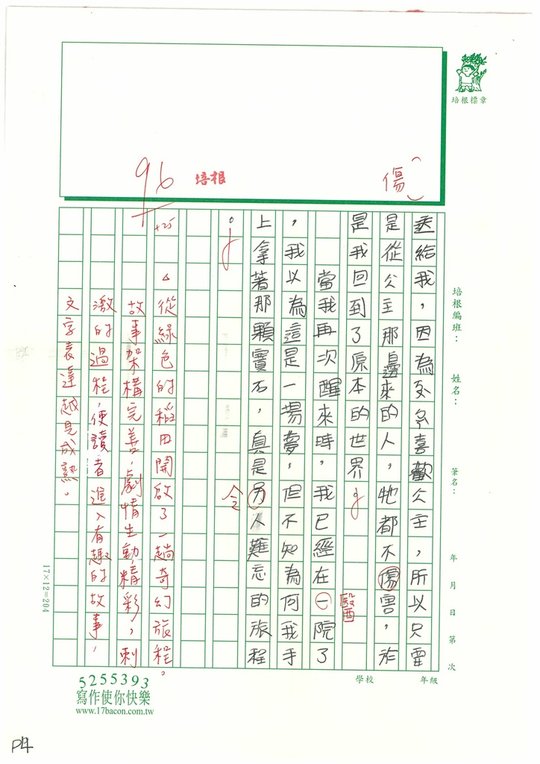 培根標章
96
培根
傷
送給我，因為死冬喜歡公主，所以只要
是從公主那邊來的人，牠都不傷害，於
是我回到了原本的世界。
當我再次醒來時，我已經在一院了
醫
，我以為這是一場夢，但不知為何我手
上拿著那顆寶石，真是另人難忘的旅程
令
。
+25
△從綠色的稻田開啟了一趟奇幻旅程。
故事架構完善，劇情生動精彩，刺
激的過程，使讀者進入有趣的故事，
文字表達越見成熟。
培根編班：
姓名：
筆名：
年 月 日 第 次
學校 年級
17×12=204
5255393
寫作使你快樂
www.17bacon.com.tw
P4